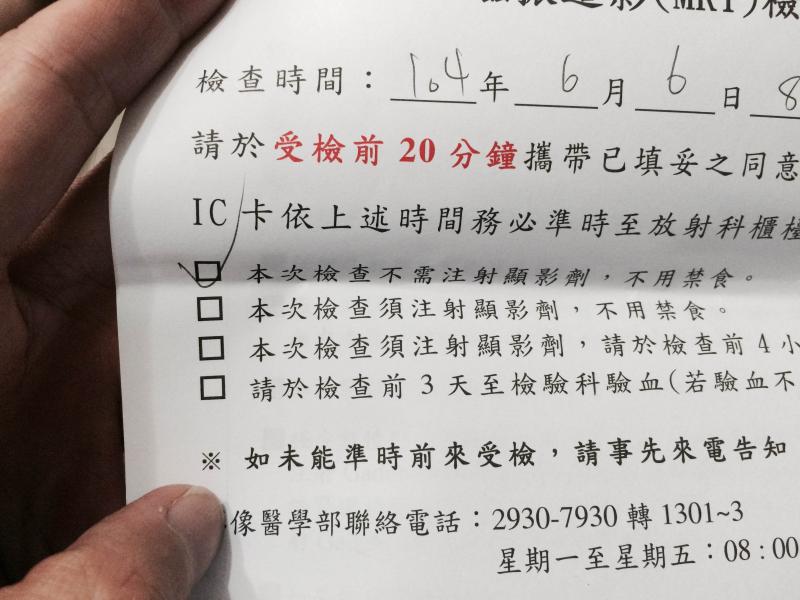 振造影(MRI)檢
檢查時間：104年 6月 6日 8
請於受檢前 20 分鐘攜帶已填妥之同意
IC 卡依上述時間務必準時至放射科櫃檯
☑ 本次檢查不需注射顯影劑，不用禁食。
□ 本次檢查須注射顯影劑，不用禁食。
□ 本次檢查須注射顯影劑，請於檢查前 4 小
□ 請於檢查前 3 天至檢驗科驗血(若驗血不
※ 如未能準時前來受檢，請事先來電告知
像醫學部聯絡電話：2930-7930 轉 1301~3
星期一至星期五：08:00